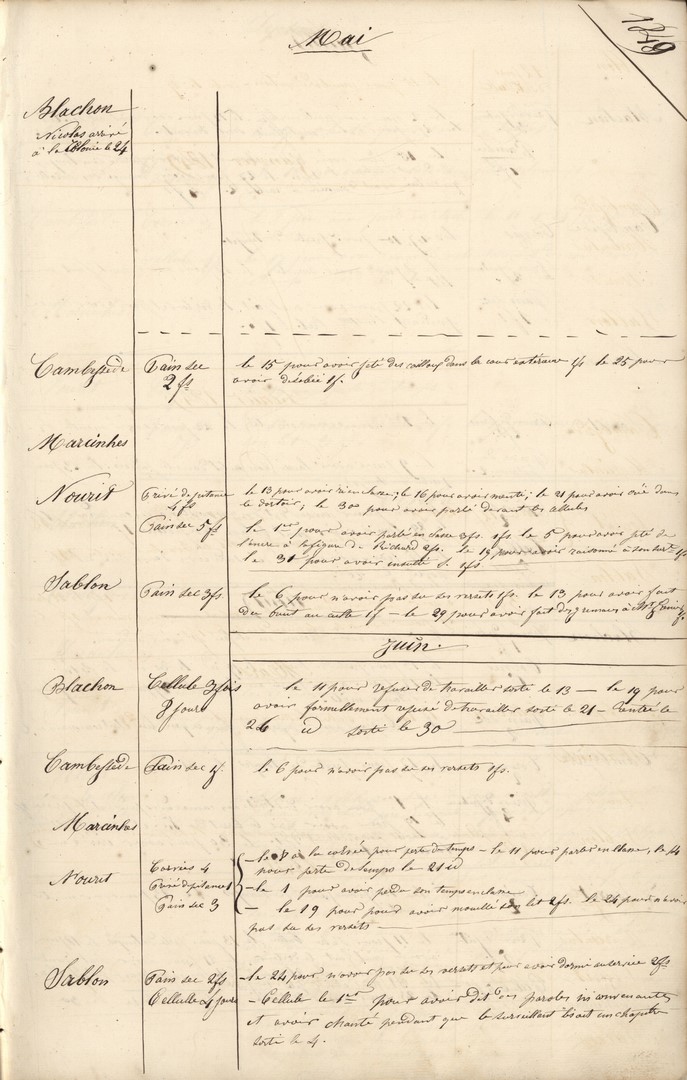 Mai
1249
Blachon
Nicolas arrivé
à la Colonie le 24
Cambessède Pain sec 2 fs
le 15 pour avoir jeté des cailloux dans la cour extérieure 1fs le 25 pour
avoir désobéi 1f.
Marcinhes
Nourit Privé de pitance 4 fs
le 13 pour avoir ri en classe; le 16 pour avoir menti; le 21 pour avoir crié dans
le dortoir; le 30 pour avoir parlé devant les cellules
Pain sec 5 fs
le 1er pour avoir parlé en classe 1fs. le 5 pour avoir jeté de
l'encre à la figure de Richard 2fs. le 19 pour avoir raisonné à son 1fs
le 31 pour avoir insulté 1fs
Sablon Pain sec 3fs
le 6 pour n'avoir pas su ses versets 1fs. le 13 pour avoir fait
du bruit au culte 1f – le 29 pour avoir fait des à Mr
Juin.
Blachon Cellule 3 fois
8 jours
le 11 pour refuser de travailler sorti le 13 — le 19 pour
avoir formellement refusé de travailler sorti le 21 – rentré le
26 id sorti le 30
Cambessède Pain sec 1f.
le 6 pour n'avoir pas su ses versets 1fs.
Marcinhes
Nourit
Corvées 4
Privé de pitance 1
Pain sec 3
– le à la corvée pour perte de temps – le 11 pour parler en classe, le 14
pour perte de temps le 21 id
– le 1 pour avoir perdu son temps en classe
– le 19 pour pour avoir mouillé son lit 2fs. le 24 pour n'avoir
pas su ses versets –
Sablon Pain sec 2fs
Cellule 4 jours
– le 24 pour n'avoir pas su ses versets et pour avoir dormi au service 2fs
– Cellule le 1er pour avoir dit des paroles inconvenantes
et avoir chanté pendant que le surveillant lisait un chapitre
sorti le 4.